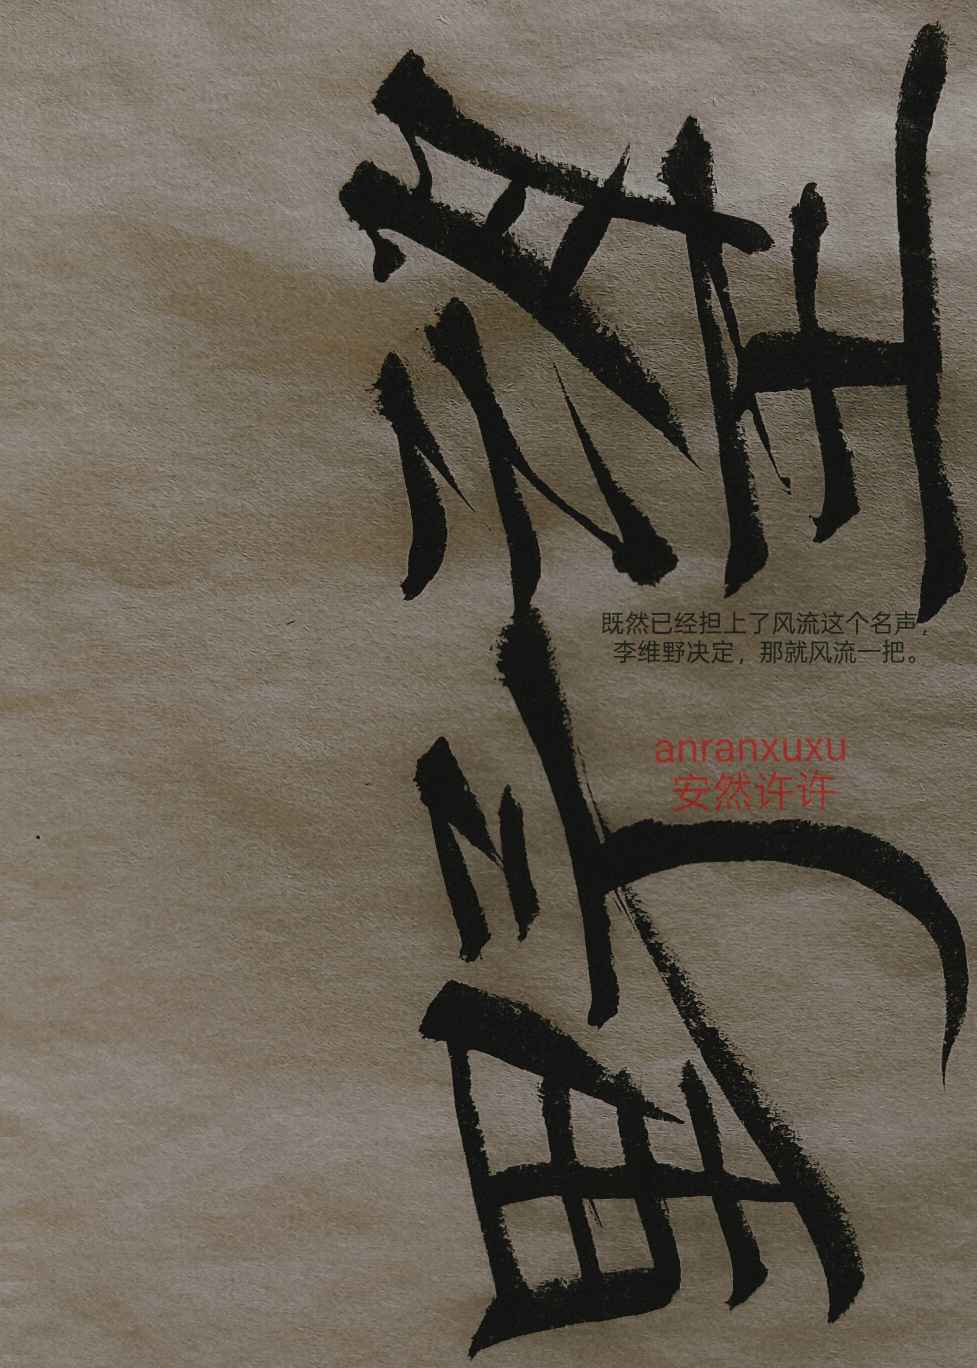 野望
既然已经担上了风流这个名声，
李维野决定，那就风流一把。
anranxuxu
安然许许